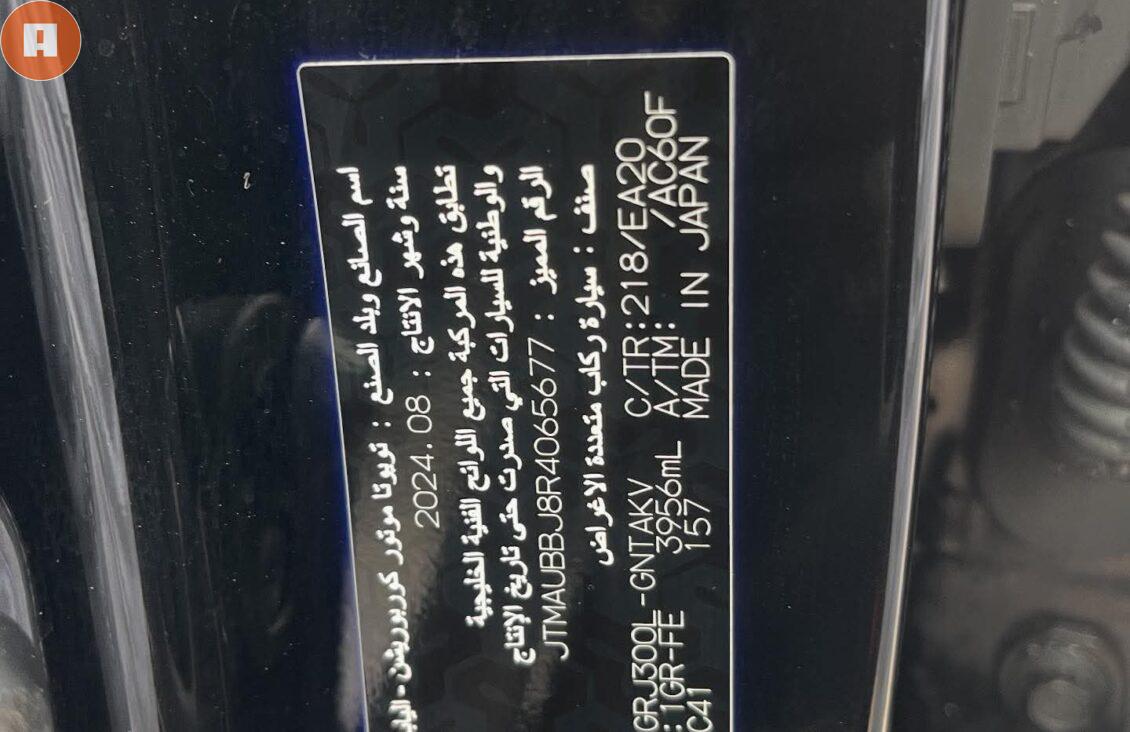 A
اسم الصانع وبلد الصنع : تويوتا موتور كوربوريشن - اليا
سنة وشهر الانتاج : 2024.08
تطابق هذه المركبة جميع اللوائح الفنية الخليجية
والوطنية للسيارات التي صدرت حتى تاريخ الإنتاج
الرقم المميز : JTMAUBBJ8R4065677
صنف : سيارة ركاب متعددة الاغراض
GRJ300L-GNTAKV C/TR:218/EA20
:1GR-FE 3956mL A/TM: /AC60F
C41 157 MADE IN JAPAN